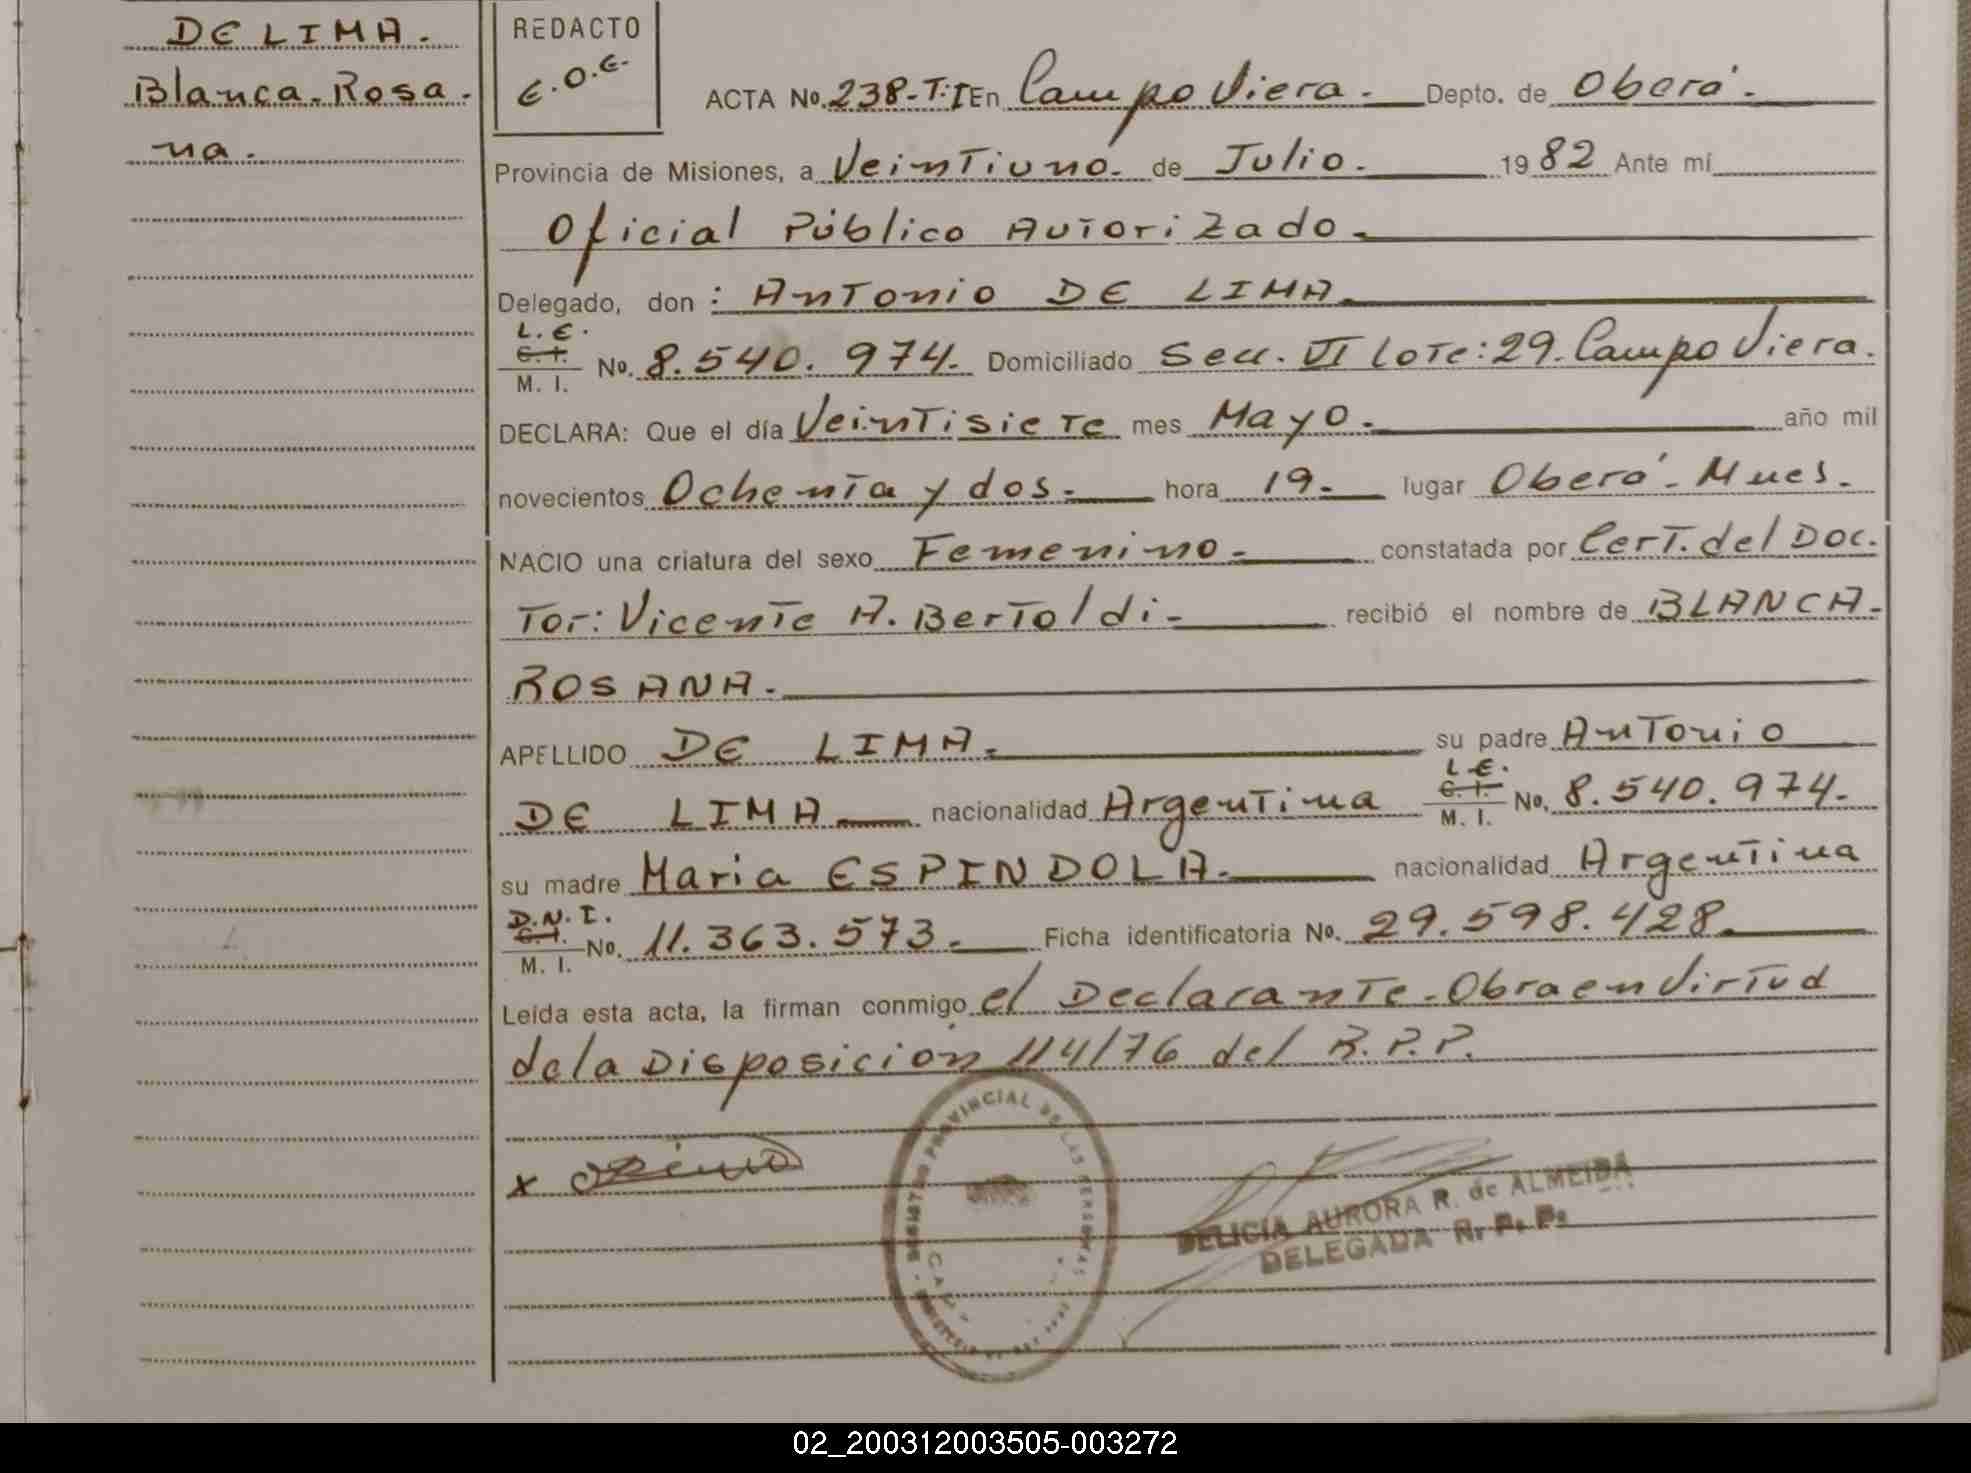 DE LIMA.
Blanca-Rosa.
na.
REDACTO
E.O.E.
ACTA No. 238-T:I En Campo Viera. Depto. de Oberá.
Provincia de Misiones, a Veintiuno. de Julio. 1982 Ante mí
Oficial Público Autorizado.
Delegado, don: Antonio DE LIMA.
L.E.
C.I. No. 8.540.974. Domiciliado Secc. VI Lote: 29. Campo Viera.
M. I.
DECLARA: Que el día Veintisiete mes Mayo. año mil
novecientos Ochenta y dos. hora 19. lugar Oberá. Mnes.
NACIO una criatura del sexo Femenino. constatada por Cert. del Doc.
Tor: Vicente A. Bertoldi. recibió el nombre de BLANCA.
ROSANA.
APELLIDO DE LIMA. su padre Antonio
L.E.
DE LIMA nacionalidad Argentina C.I. No. 8.540.974.
M. I.
su madre Maria ESPINDOLA. nacionalidad Argentina
D.N.I.
C.I. No. 11.363.573. Ficha identificatoria No. 29.598.428.
M. I.
Leída esta acta, la firman conmigo el Declarante. Obra en Virtud
de la Disposicion 114/76 del R.P.P.
x
REGISTRO PROVINCIAL DE LAS PERSONAS
DELICIA AURORA R. de ALMEIDA
DELEGADA R. P. P.
02_200312003505-003272